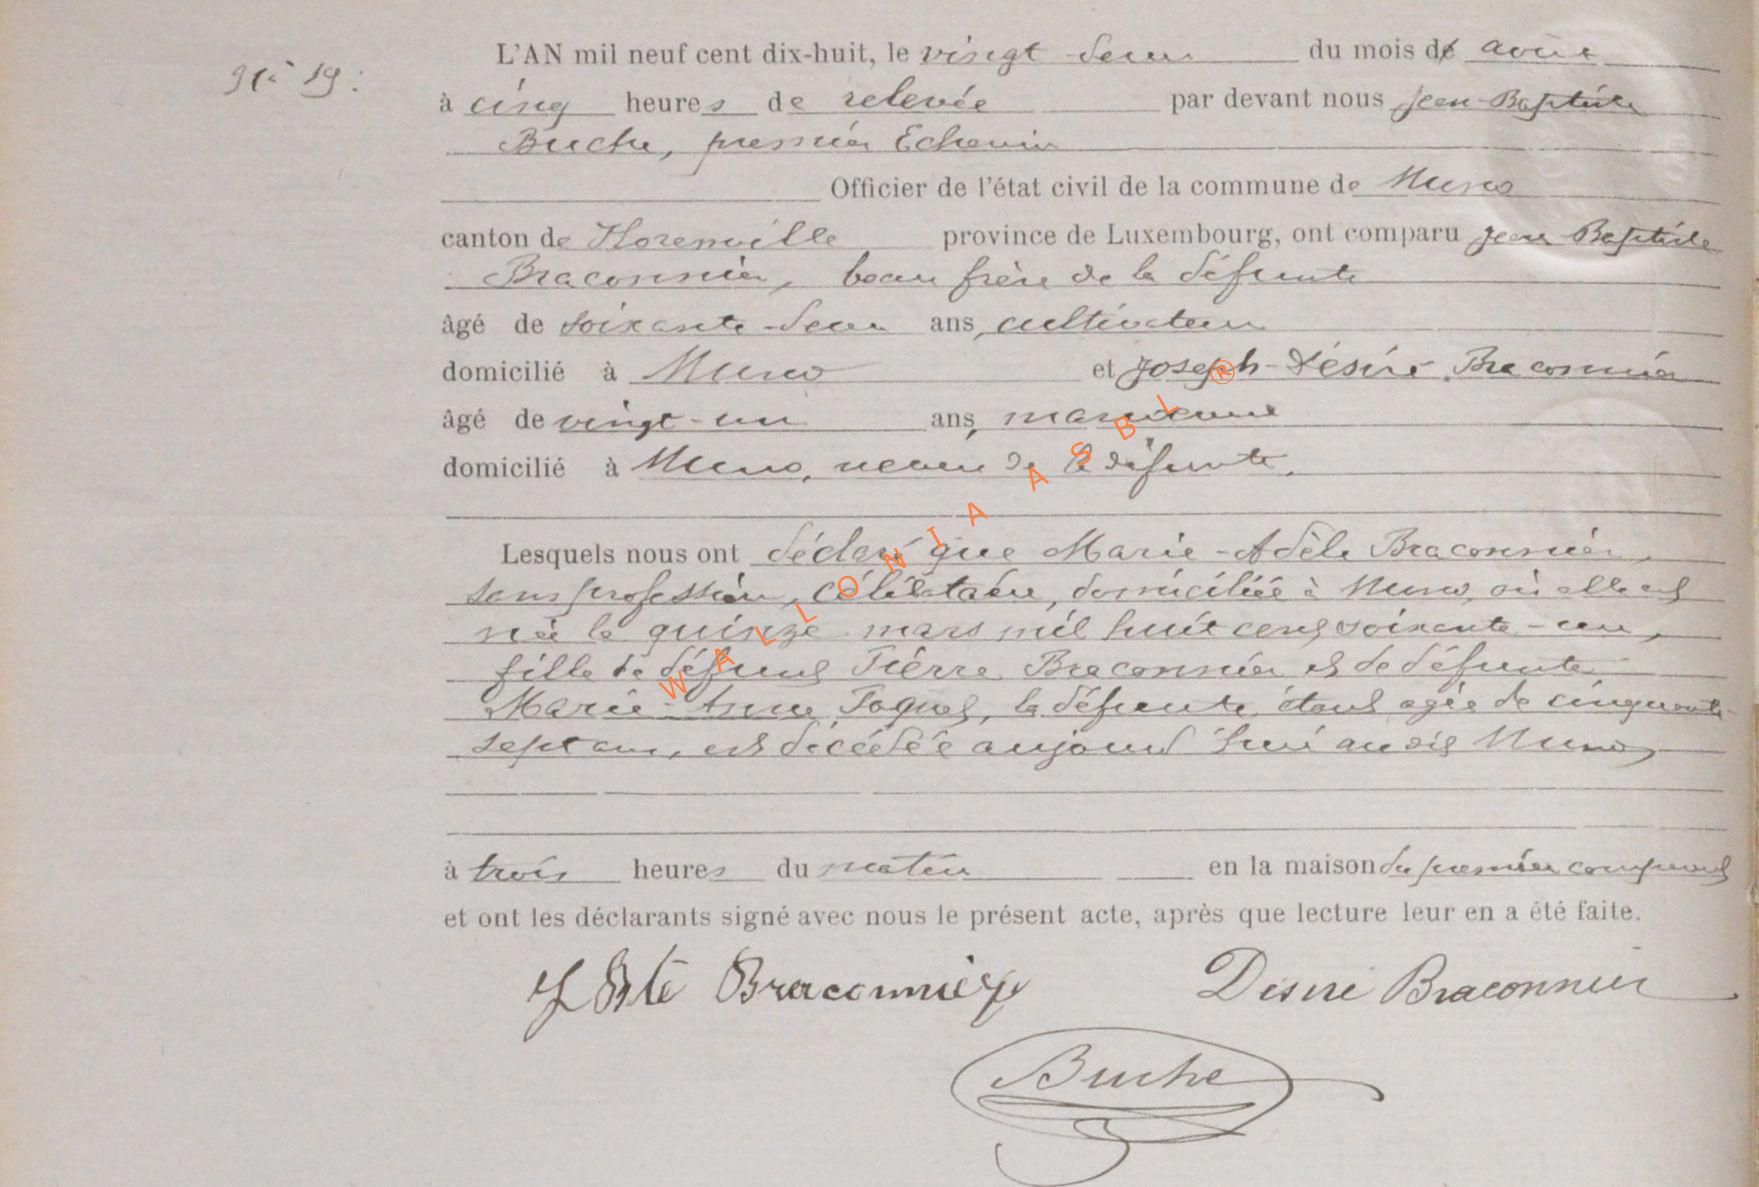 N° 19.
L'AN mil neuf cent dix-huit, le vingt-deux du mois d' août
à cinq heures de relevée par devant nous Jean-Baptiste
Buche, premier Echevin
Officier de l'état civil de la commune de Muno
canton de Florenville province de Luxembourg, ont comparu Jean Baptiste
Braconnier, beau frère de la défunte
âgé de soixante-deux ans, cultivateur
domicilié à Muno et Joseph-Désiré Braconnier
âgé de vingt-un ans,
domicilié à Muno, neveu de la défunte.
Lesquels nous ont déclaré que Marie-Adèle Braconnier,
sans profession, célibataire, domiciliée à Muno, où elle est
née le quinze mars mil huit cent soixante-un,
fille de défunt Pierre Braconnier et de défunte
Marie-Anne Jaques, la défunte étant agée de cinquante-
sept ans, est décédée aujourd'hui au dit Muno,
à trois heures du matin en la maison du premier comparant
et ont les déclarants signé avec nous le présent acte, après que lecture leur en a été faite.
J Bte Braconnier Désiré Braconnier
Buche
WALLONIA ASBL ®